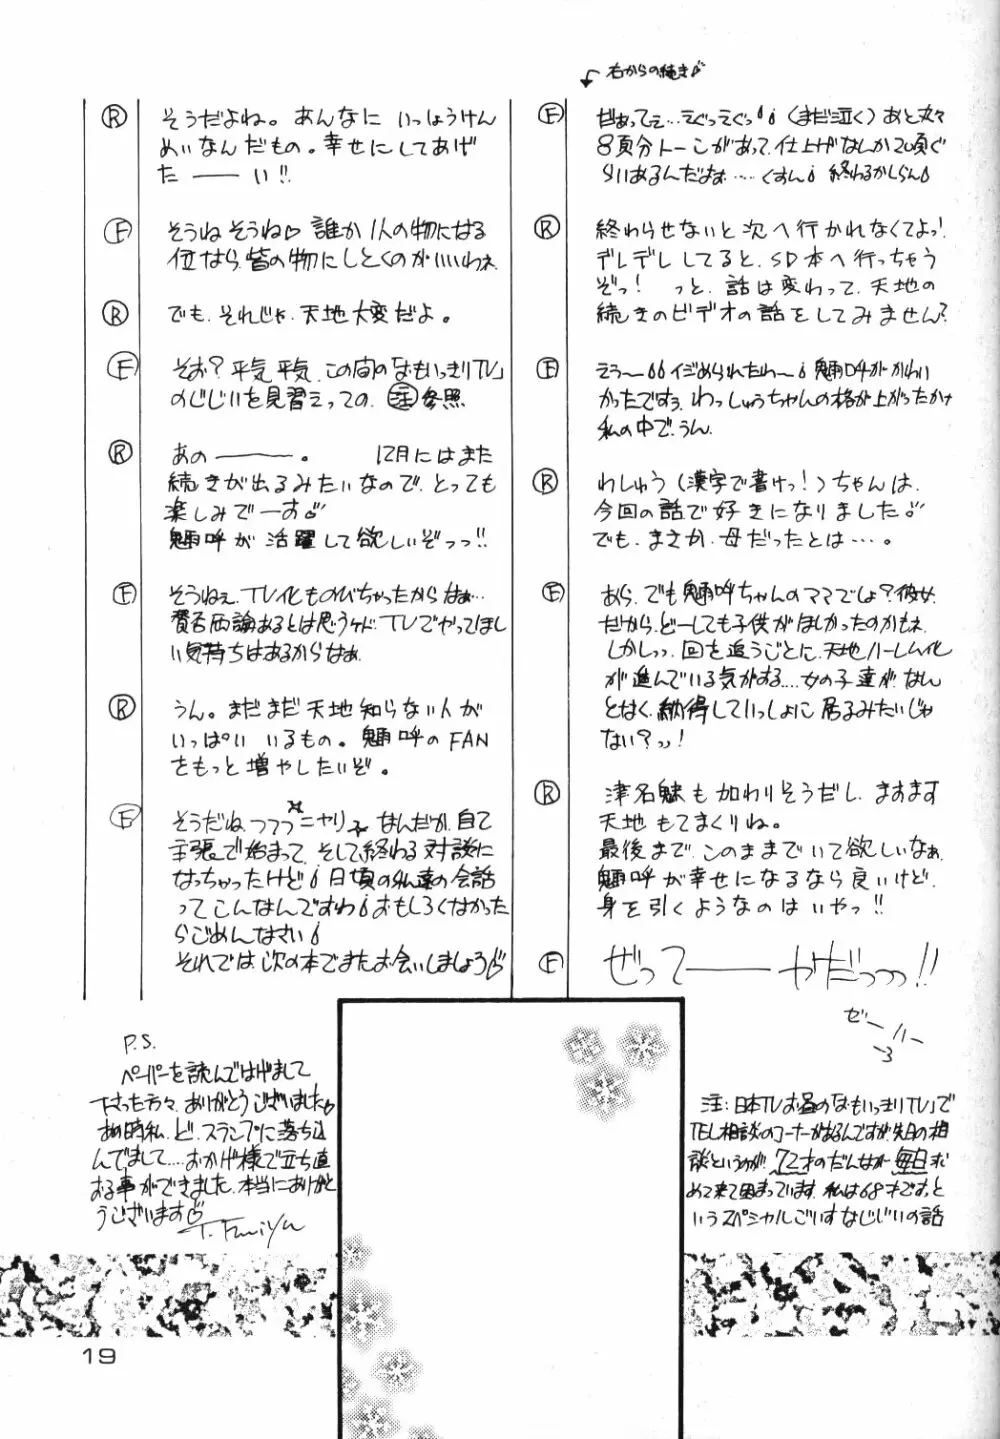 右からの続き
Ⓕ だぁってぇ…えぐっえぐっ(まだ泣く)あと丸々
8頁分トーンがあって、仕上げなしか20頁ぐ
らいあるんだよぉ……くすん 終わるかしらん
Ⓡ 終わらせないと次へ行かれなくてよっ!
デレデレしてると、SD本へ行っちゃう
ぞっ! っと、話は変わって、天地の
続きのビデオの話をしてみません?
Ⓕ えぅ〜イジめられたわ〜魎呼がかわい
かったですぅ。わっしゅうちゃんの格が上がったかな
私の中で、うん。
Ⓡ わしゅう(漢字で書けっ!)ちゃんは、
今回の話で好きになりました
でも、まさか、母だったとは…。
Ⓕ あら、でも魎呼ちゃんのママでしょ?彼女、
だから、どーしても子供がほしかったのかもネ
しかしっっ、回を追うごとに、天地ハーレム化
が進んでいる気がする....女の子達が、なん
となく、納得していっしょに居るみたいじゃ
ない?っっ!
Ⓡ 津名魅も加わりそうだし、ますます
天地もてまくりね。
最後まで、このままでいて欲しいなぁ
魎呼が幸せになるなら良いけど、
身を引くようなのはいやっ!!
Ⓕ ぜって――やだっっっ!!
ゼーハー
Ⓡ そうだよね。あんなに いっしょうけん
めいなんだもの。幸せにしてあげ
た――い!!
Ⓕ そうねそうね♡ 誰か1人の物になる
位なら、皆の物にしとくのがいいわネ
Ⓡ でも、それじゃ、天地大変だよ。
Ⓕ そお?平気平気、この間の「なもいっきりTV」
のじじいを見習えっての、㊟参照
Ⓡ あの――。 12月にはまた
続きが出るみたいなので、とっても
楽しみでーす
魎呼が活躍して欲しいぞっっ!!
Ⓕ そうねぇ、TV化ものびちゃったからなぁ…
賛否両論あるとは思うケド、TVでやってほし
い気持ちはあるからなぁ
Ⓡ うん。まだまだ天地知らない人が
いっぱい いるもの。魎呼のFAN
をもっと増やしたいぞ。
Ⓕ そうだね、フフフ ニヤリ なんだか、自己
主張で始まって、そして終わる対談に
なっちゃったけど 日頃の私達の会話
ってこんなんですわ おもしろくなかった
らごめんなさい
それでは次の本でまたお会いしましょう♡
P.S.
ペーパーを読んではげまして
下さった方々、ありがとうございました
あの時私、ど、スランプに落ち込
んでまして....おかげ様で立ち直
る事ができました、本当にありがと
うございます♡
注:日本TVお昼の「なもいっきりTV」で
TEL相談のコーナーがあるんですが、先日の相
談というのが、72才のだんなが、毎日求
めて来て困まっています、私は68才です。と
いうスペシャルごいすなじじいの話
19